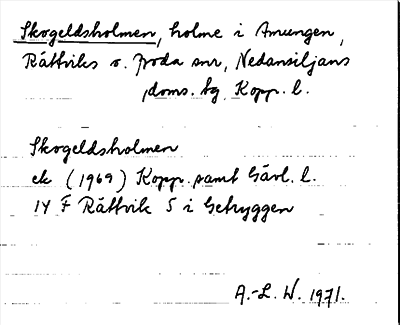 Skogeldsholmen, holme i Amungen,
Rättviks o. Joda snr, Nedansiljans
doms. tg Kopp. l.
Skogeldsholmen
ek (1969) Kopp. samt Gävl. l.
14 F Rättvik 5 i Getryggen
A.-L. W. 1971.